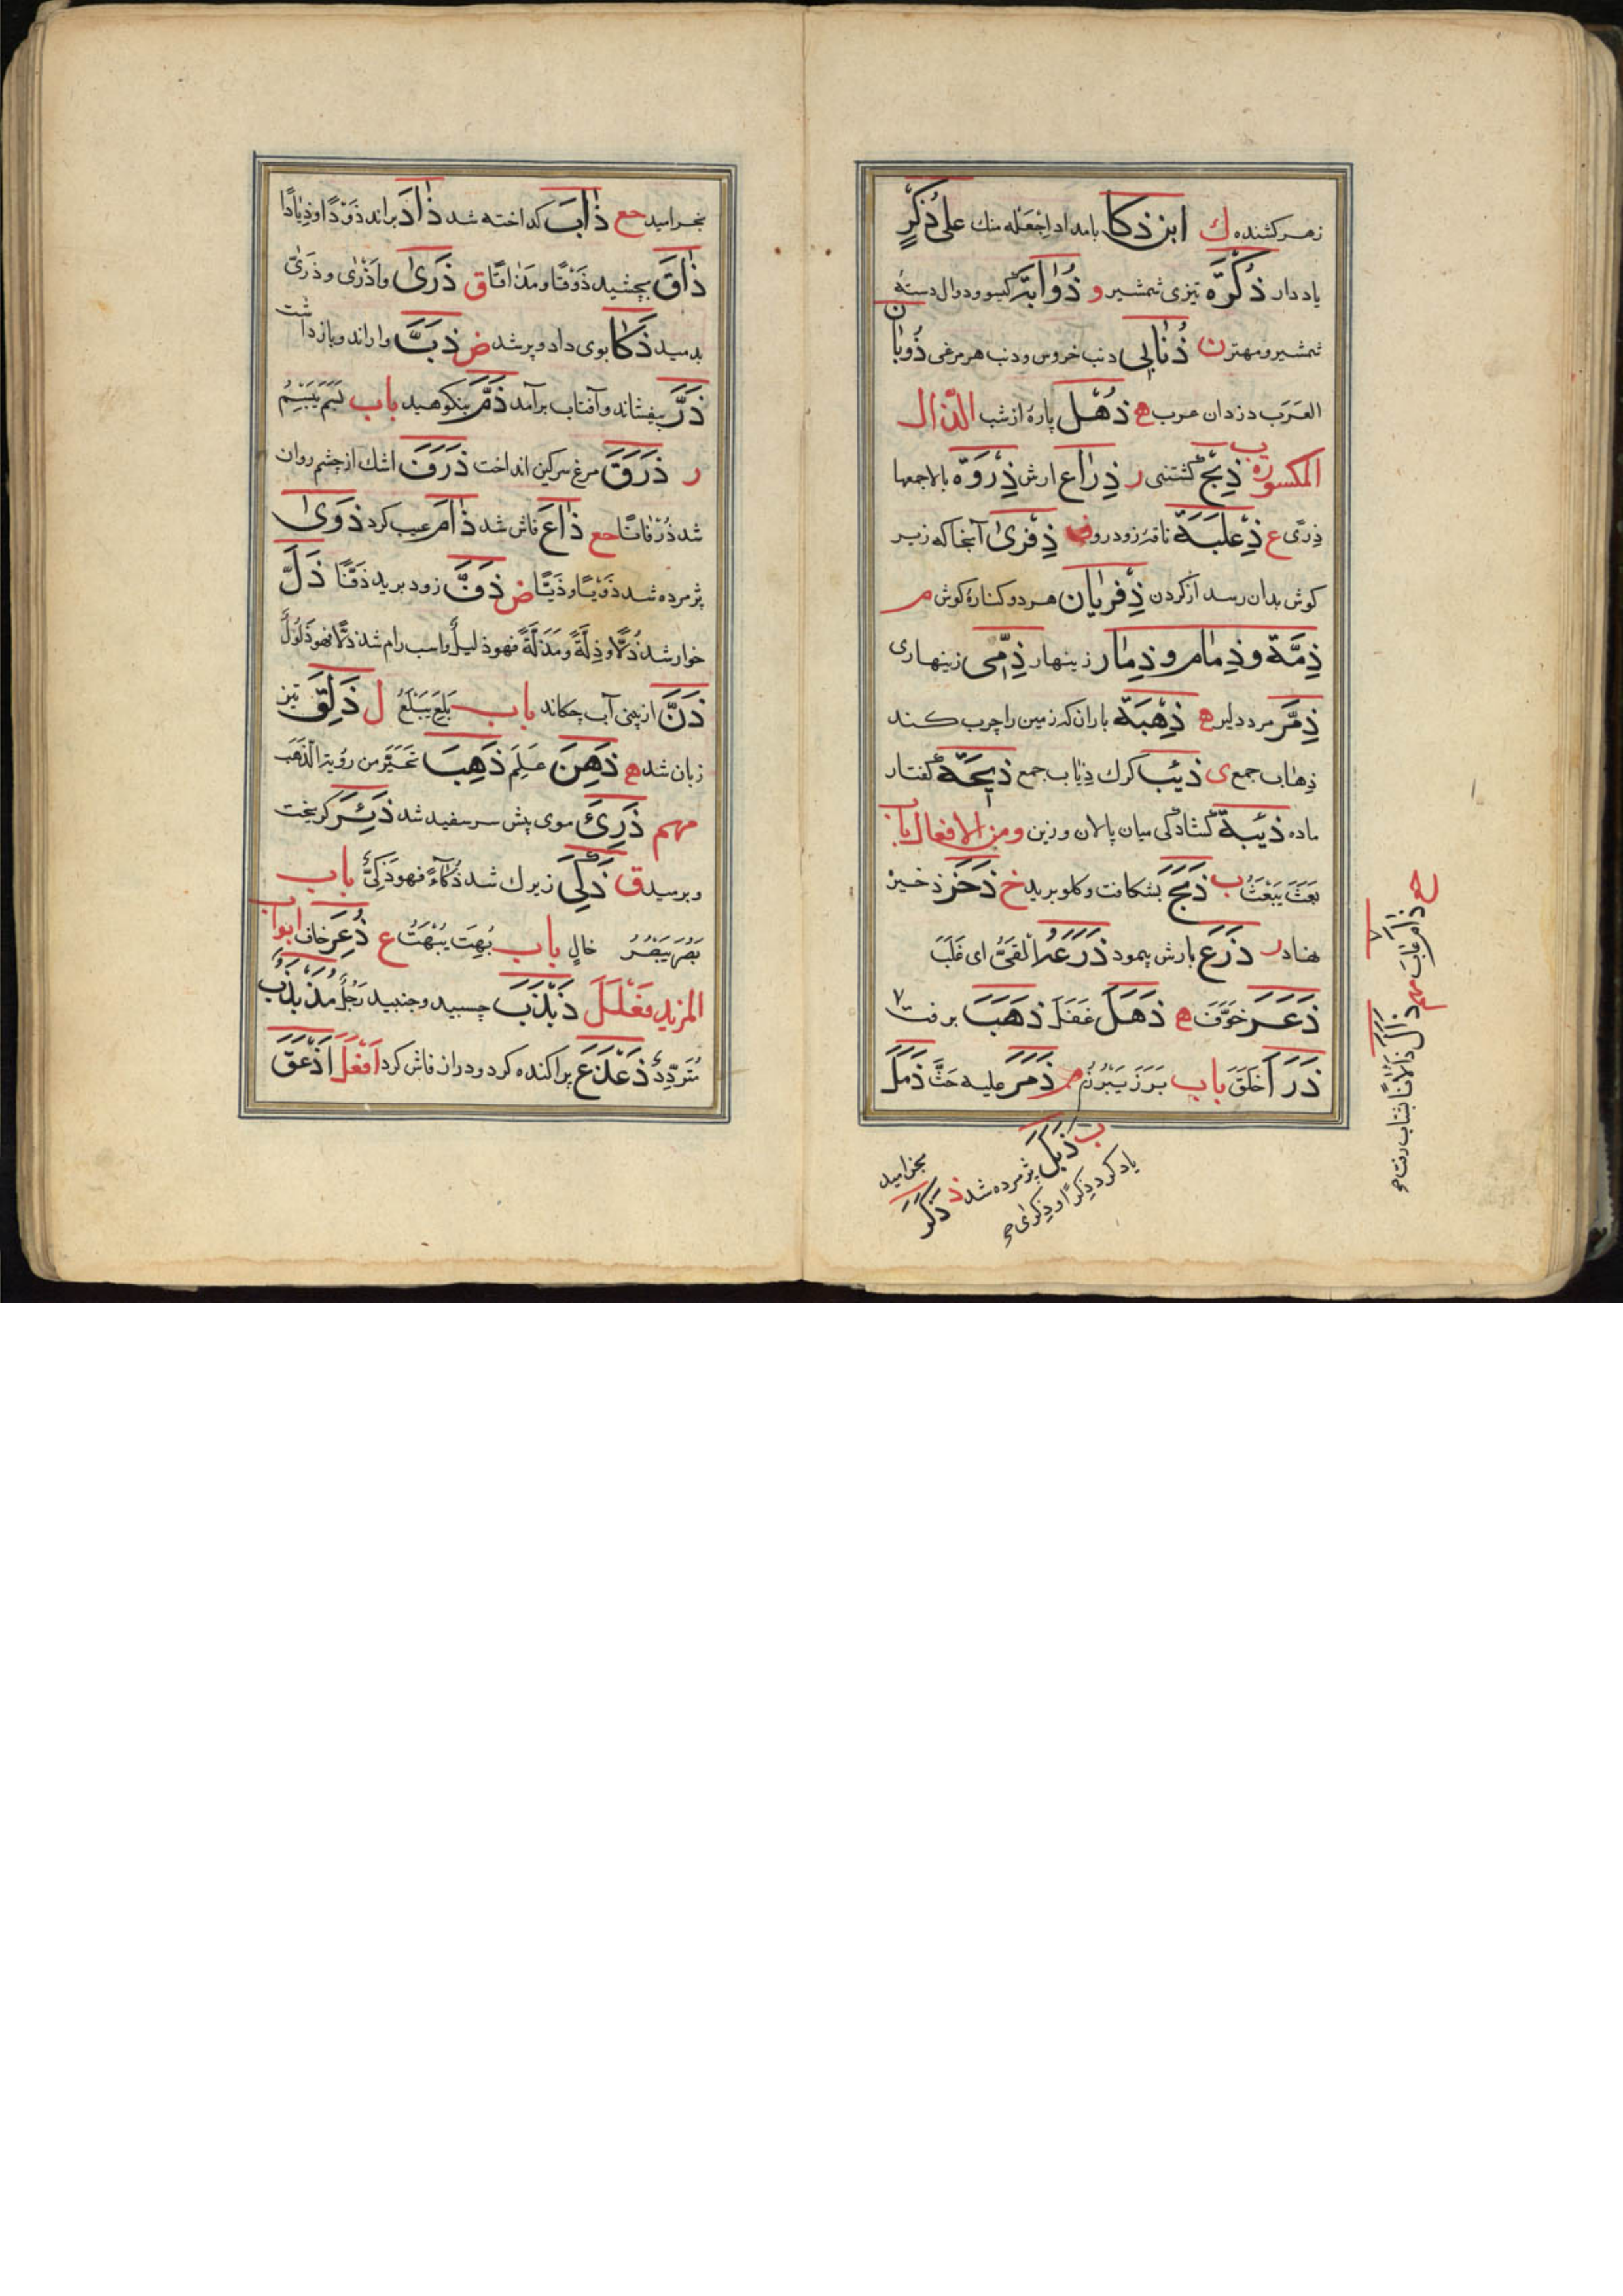 زهر کشنده ك ابن ذكا بامداد اجعله منك علی ذُكرٍ
یاد دار ذُكرَة تیزی شمشیر و ذُوابَة گیسو و دوال دستهٔ
شمشیر و مهتر ن ذُنابی دنب خروس و دنب هر مرغی ذُوبان
العَرَب دزدان عرب ه ذُهل پارهٔ از شب الذّال
المكسورة ب ذِبح كشتنی ر ذِراع ارش ذِروَة بالا جمعها
ذِرًی ع ذِعلَبَة ناقهٔ زودرو ف ذِفری آنجا كه زیر
كوش بدان رسد از كردن ذِفریان هر دو كنارهٔ كوش م
ذِمَّة و ذِمام و ذِمار زینهار ذِمّی زینهاری
ذِمَّر مرد دلیر ه ذِهبَة باران كه زمین را چرب كند
ذِهاب جمع ی ذیٔب كرك ذیاب جمع ذیخَة كفتار
ماده ذیٔبة كشادكی میان پالان و زین و من الافعال باب
بَعَثَ یَبعَثُ ب ذَبَحَ بشكافت و كلو برید خ ذَخَرَ ذخیره
نهاد ر ذَرَعَ بارش پیمود ذَرَعَهُ القَیُّ ای غَلَبَ
ذَعَرَ خَوَّفَ ه ذَهَلَ غَفَلَ ذَهَبَ برفت
ذَرَأ خَلَقَ باب بَرَزَ یَبرُزُ م ذَمَرَ علیه حَثَّ ذَمَلَ
ب ذَبَلَ پژمرده شد ذ ذَكَرَ
یاد كرد ذِكرًا و ذِكرٰی صح
بخرامید
ح ذَأمَ عَابَ مهم
ذَأل ذَألانًا بشتاب رفت صح
بخرامید حع ذابَ كداخته شد ذادَ براند ذَودًا و ذِیادًا
ذاقَ بچشید ذَوقًا و مَذاقًا ق ذَری و اَذری و ذَرّی
بدمید ذَكا بوی داد و پر شد ض ذَبَّ وا راند و بازداشت
ذَرَّ بیفشاند و آفتاب برآمد ذَمَّ بنكوهید باب بَسَمَ یَبسِمُ
ر ذَرَقَ مرغ سركین انداخت ذَرَفَ اشك از چشم روان
شد ذَرفانًا حع ذاعَ فاش شد ذامَ عیب كرد ذَوی
پژمرده شد ذَویًا و ذَیًّا ض ذَفَّ زود برید ذَفًّا ذَلَّ
خوار شد ذُلًّا و ذِلَّةً و مَذَلَّةً فهو ذلیلٌ و اسب رام شد ذِلًّا فهو ذَلُولٌ
ذَنَّ از بینی آب چكاند باب بَلِعَ یَبلَعُ ل ذَلِقَ تیز
زبان شد ه ذَهِنَ عَلِمَ ذَهِبَ تَحَیَّرَ من رؤیة الذَهَب
مهم ذَرِئَ موی پیش سر سفید شد ذَئِرَ كریخت
و برسید ق ذَكِیَ زیرك شد ذَكآءً فهو ذَكِیٌّ باب
بَصُرَ یَبصُرُ خالٍ باب بُهِتَ یُبهَتُ ع ذُعِرَ خاف ابواب
المزید فَعلَلَ ذَبذَبَ جسبید و جنبید رَجُلٌ مُذَبذَبٌ
مُتَردِّدٌ ذَعذَعَ پراكنده كرد و دراز فاش كرد اَفعَلَ اَذعَقَ